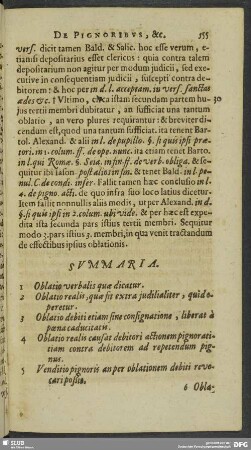 DE PIGNORIBVS, &c. 155
vers. dicit tamen Bald. & Salic. hoc esse verum, e-
tiamsi depositarius esset clericus: quia contra talem
depositarium non agitur per modum judicii, sed exe-
cutive in consequentiam judicii, suscepti contra de-
bitorem: & hoc per
ades &c. † Ultimo, circa istam secundam partem hu-
jus tertii membri dubitatur, an sufficiat una tantum
oblatio, an vero plures requirantur: & breviter di-
cendum est, quod una tantum sufficiat. ita tenent Bar-
tol. Alexand. & alii in
30
quitur ibi Jason.
nul. C. de
l. a. de pigno. acti. de quo infra suo loco latius dicetur.
Item fallit nonnullis aliis modis, ut per Alexand. in d.
§. si quis ipsi in 2. colum. ubi vide. & per hæc est expe-
dita ista secunda pars istius tertii membri. Sequitur
modo 3. pars istius 3. membri, in qua venit tractandum
de effectibus ipsius oblationis.
SVMMARIA.
1 Oblatio verbalis quæ dicatur.
2 Oblatio realis, quæ fit extra judicialiter, quid o-
peretur.
3 Oblatio debiti etiam sine consignatione, liberat à
pœna caducitatis.
4 Oblatio realis causat debitori actionem pignorati-
tiam contra debitorem ad repetendum pig-
nus.
5 Venditio pignoris an per oblationem debiti revo-
cari possit.
6 Obla-
SLUB
DFG